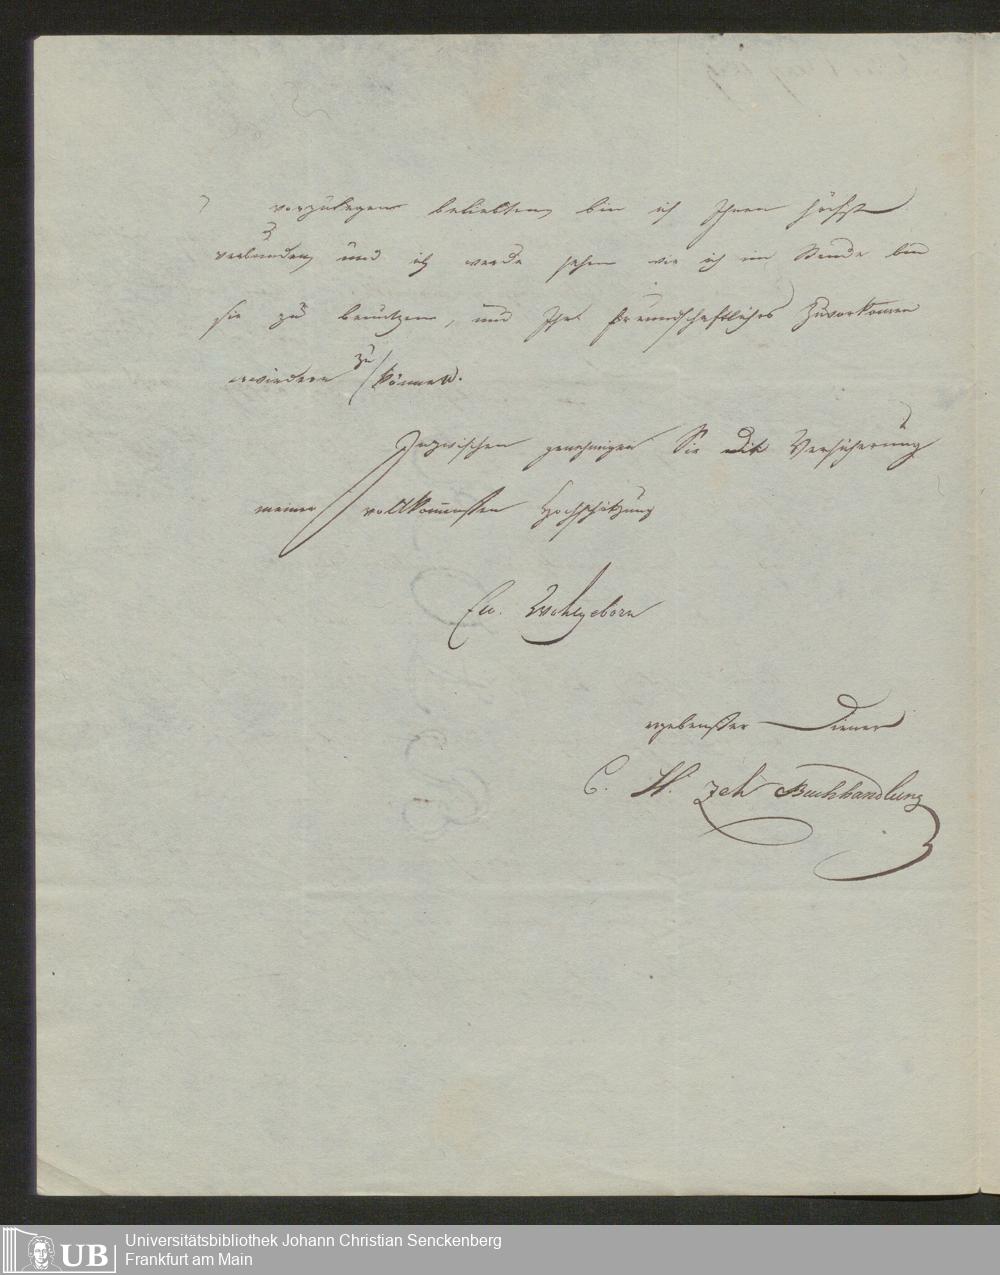 vorzulegen beliebten, bin ich Ihnen höchst
verbunden, und ich werde sehen wie ich im Stande bin
sie zu benutzen, und Ihr freundschaftliches Zuvorkomen
erwiedern zu können.
Inzwischen genehmigen Sie die Versicherung
meiner vollkomensten Hochschätzung
Ew. Wohlgeborn
ergebenster Diener
C. H. Zeh Buchhandlung
UB
Universitätsbibliothek Johann Christian Senckenberg
Frankfurt am Main